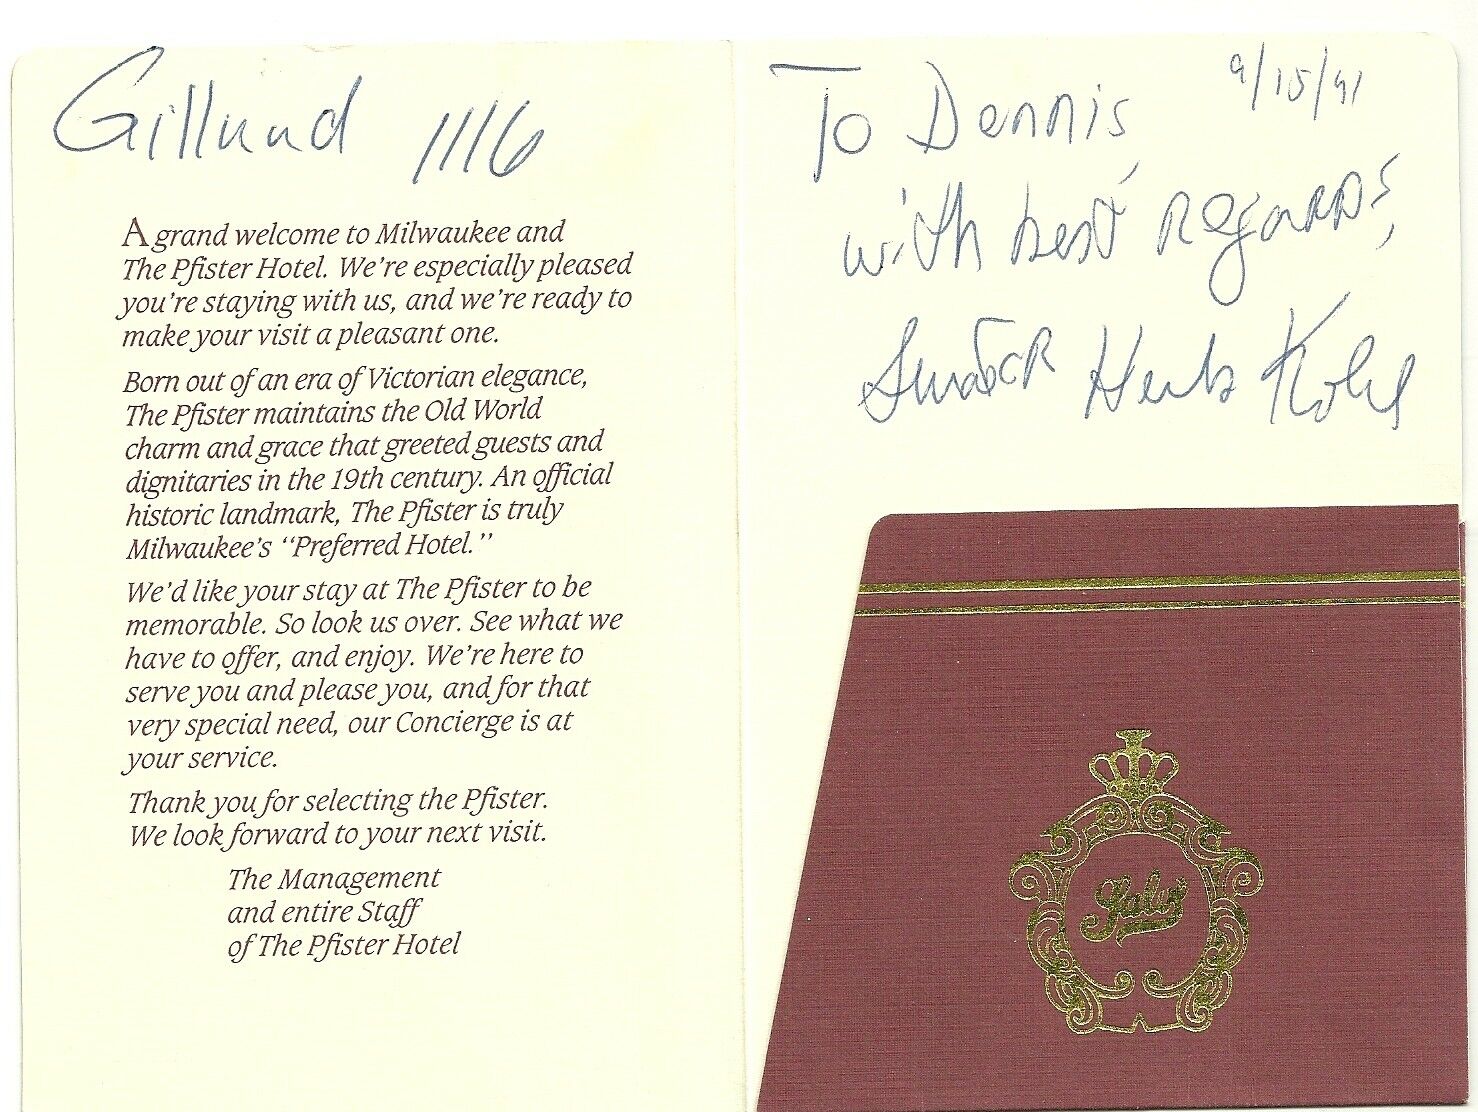 Gillund 1116
A grand welcome to Milwaukee and
The Pfister Hotel. We're especially pleased
you're staying with us, and we're ready to
make your visit a pleasant one.
Born out of an era of Victorian elegance,
The Pfister maintains the Old World
charm and grace that greeted guests and
dignitaries in the 19th century. An official
historic landmark, The Pfister is truly
Milwaukee's "Preferred Hotel."
We'd like your stay at The Pfister to be
memorable. So look us over. See what we
have to offer, and enjoy. We're here to
serve you and please you, and for that
very special need, our Concierge is at
your service.
Thank you for selecting the Pfister.
We look forward to your next visit.
The Management
and entire Staff
of The Pfister Hotel
9/15/91
To Dennis,
with best Regards,
Senator Herb Kohl
Salve